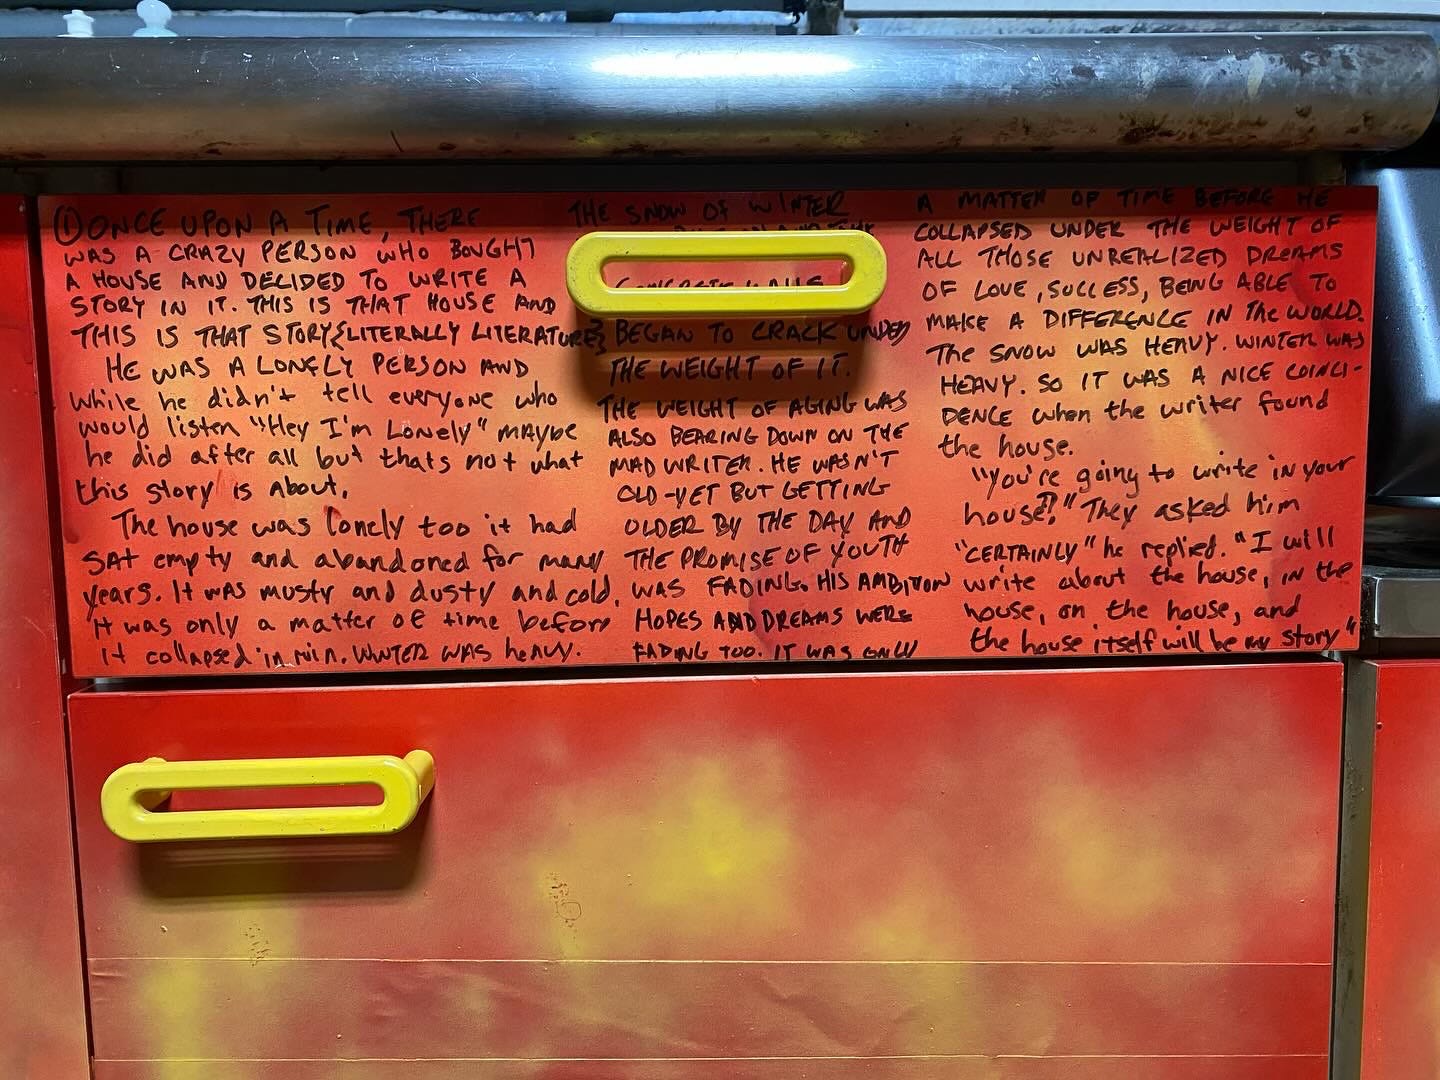 ① ONCE UPON A TIME, THERE
WAS A CRAZY PERSON WHO BOUGHT
A HOUSE AND DECIDED TO WRITE A
STORY IN IT. THIS IS THAT HOUSE AND
THIS IS THAT STORY{LITERALLY LITERATURE}
HE WAS A LONELY PERSON AND
while he didn't tell everyone who
would listen "Hey I'm Lonely" MAYBE
he did after all but thats not what
this story is About.
The house was lonely too it had
SAT empty and abandoned for many
years. It was musty and dusty and cold.
It was only a matter of time before
it collapsed in ruin. WINTER WAS heavy.
THE SNOW OF WINTER
CONCRETE WALLS
BEGAN TO CRACK UNDER
THE WEIGHT OF IT.
THE WEIGHT OF AGING WAS
ALSO BEARING DOWN ON THE
MAD WRITER. HE WASN'T
OLD-YET BUT GETTING
OLDER BY THE DAY AND
THE PROMISE OF YOUTH
WAS FADING. HIS AMBITION
HOPES AND DREAMS WERE
FADING TOO. IT WAS ONLY
A MATTER OF TIME BEFORE HE
COLLAPSED UNDER THE WEIGHT OF
ALL THOSE UNREALIZED DREAMS
OF LOVE, SUCCESS, BEING ABLE TO
MAKE A DIFFERENCE IN The WORLD.
The SNOW WAS HEAVY. WINTER WAS
HEAVY. SO IT WAS A NICE COINCI-
DENCE when the writer found
the house.
"You're going to write in your
house?!" They asked him
"CERTAINLY" he replied. "I will
write about the house, in the
house, on the house, and
the house itself will be my story"